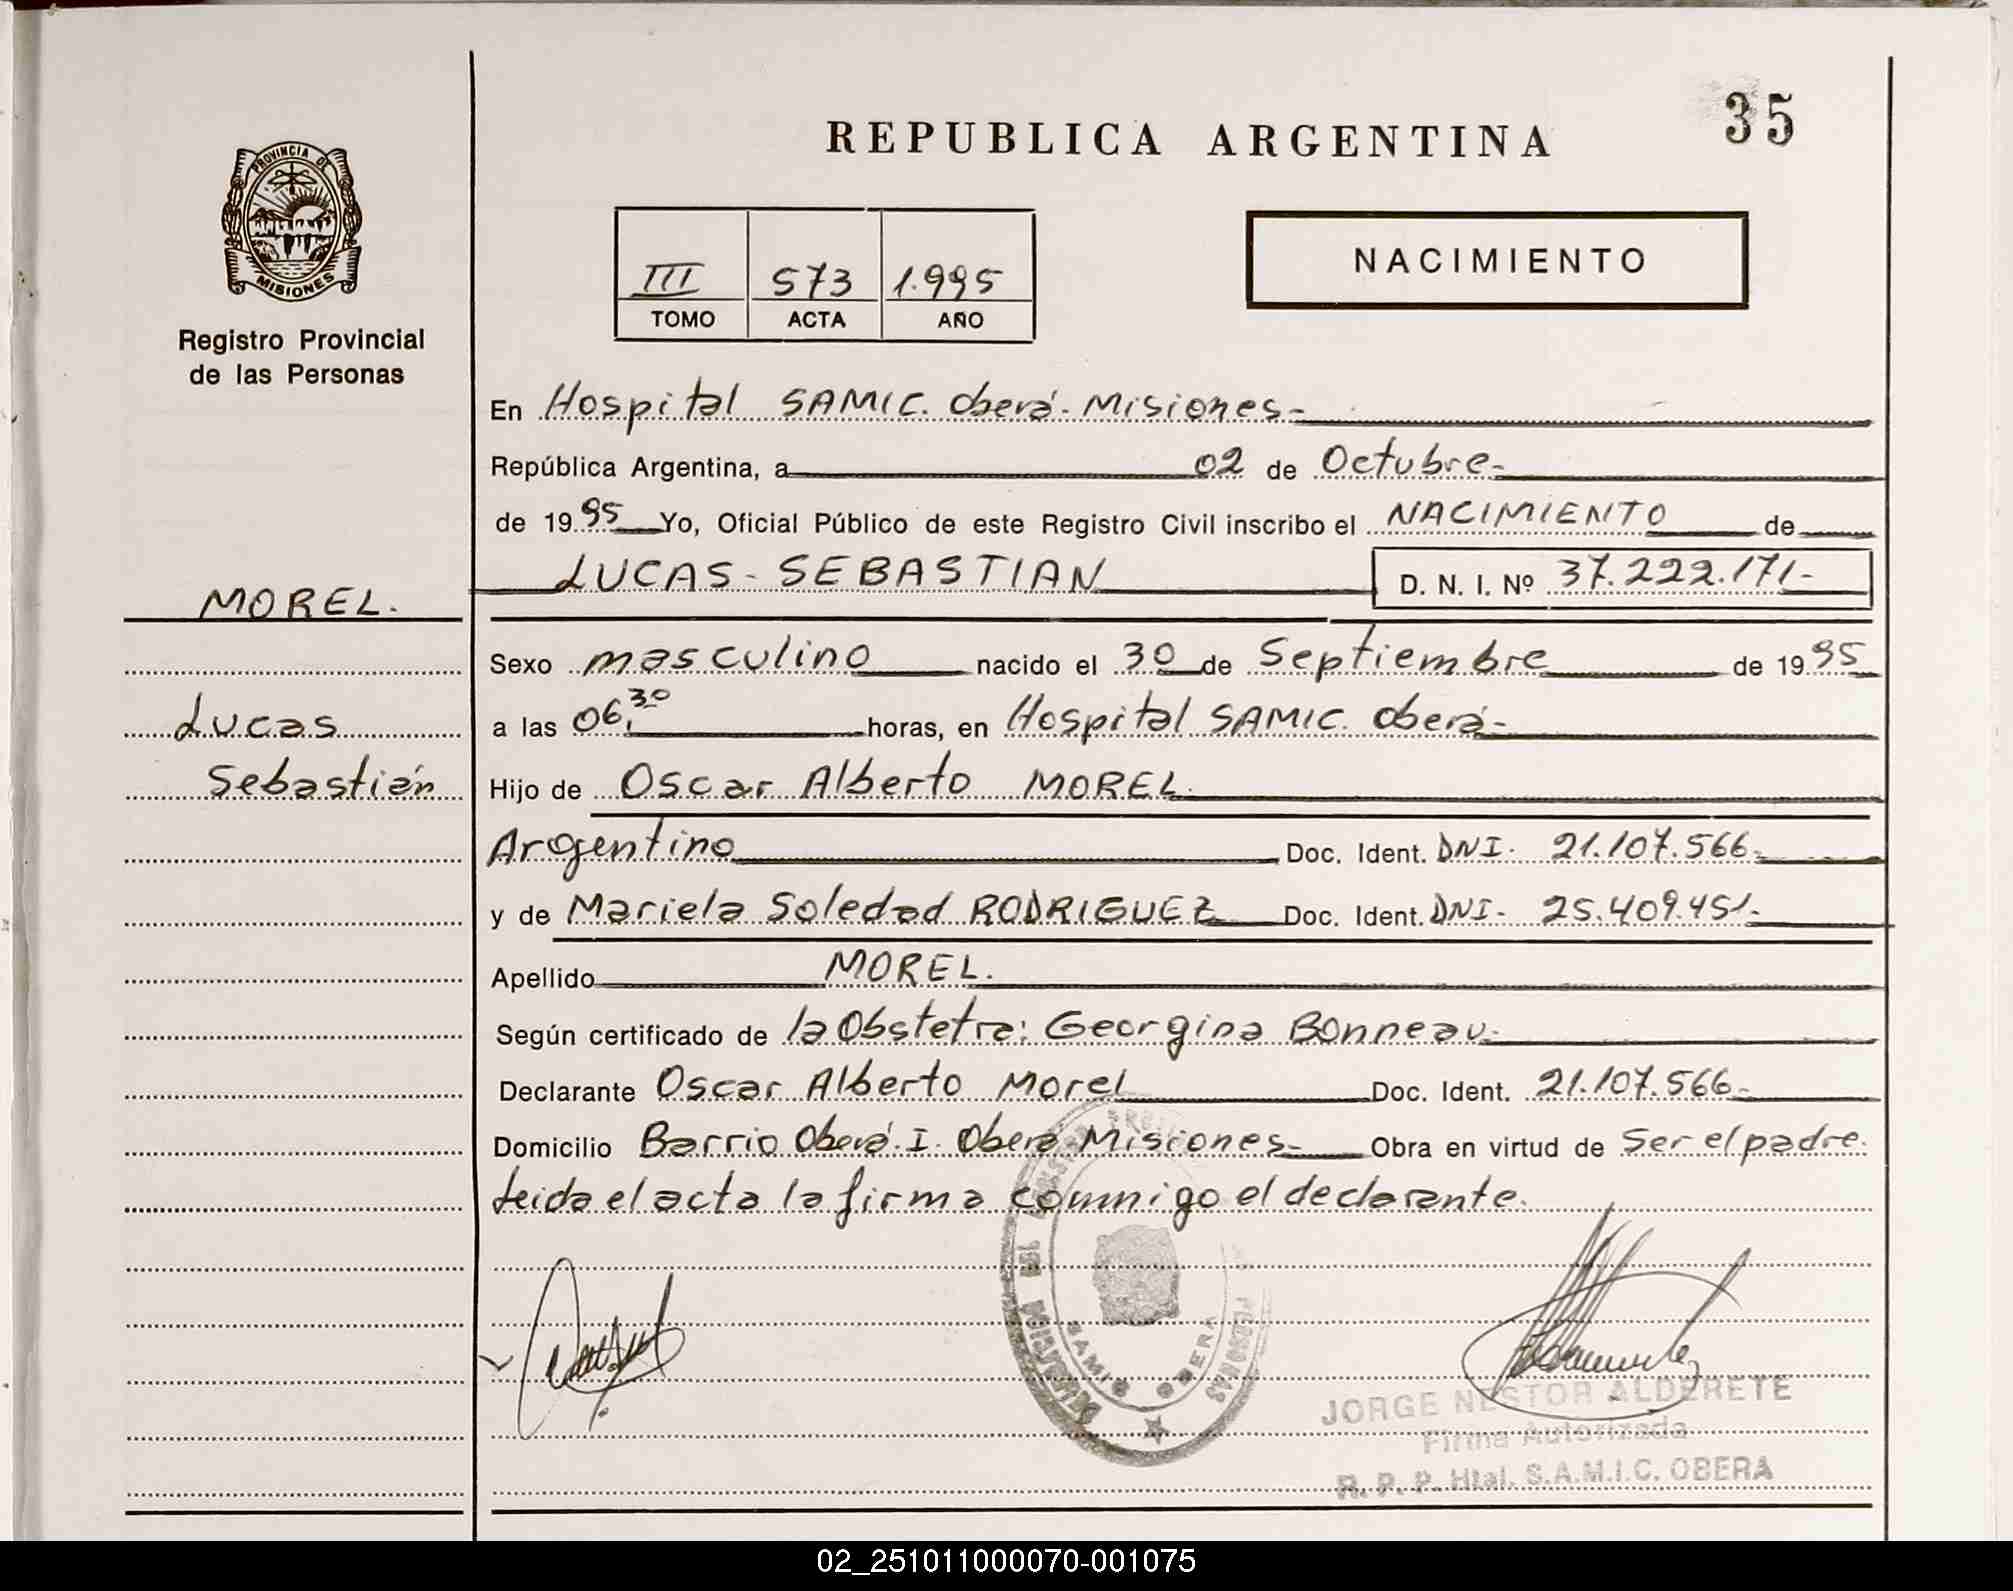 35
REPUBLICA ARGENTINA
PROVINCIA DE
MISIONES
Registro Provincial
de las Personas
III 573 1.995
TOMO ACTA AÑO
NACIMIENTO
En Hospital SAMIC. Oberá. Misiones.-
República Argentina, a 02 de Octubre.-
de 1995 Yo, Oficial Público de este Registro Civil inscribo el NACIMIENTO de
LUCAS - SEBASTIAN D. N. I. Nº 37.222.171.-
MOREL.
Lucas
Sebastián
Sexo masculino nacido el 30 de Septiembre de 1995
a las 06,30 horas, en Hospital SAMIC. Oberá.-
Hijo de Oscar Alberto MOREL.
Argentino Doc. Ident. DNI. 21.107.566.-
y de Mariela Soledad RODRIGUEZ Doc. Ident. DNI- 25.409.451.-
Apellido MOREL.
Según certificado de la Obstetra: Georgina Bonneau.-
Declarante Oscar Alberto Morel Doc. Ident. 21.107.566.-
Domicilio Barrio Oberá. I. Oberá Misiones.- Obra en virtud de Ser el padre.
Leida el acta la firma conmigo el declarante.
SAMIC OBERA
PERSONAS
JORGE NESTOR ALDERETE
Firma Autorizada
R. P. P. Htal. S.A.M.I.C. OBERA
02_251011000070-001075